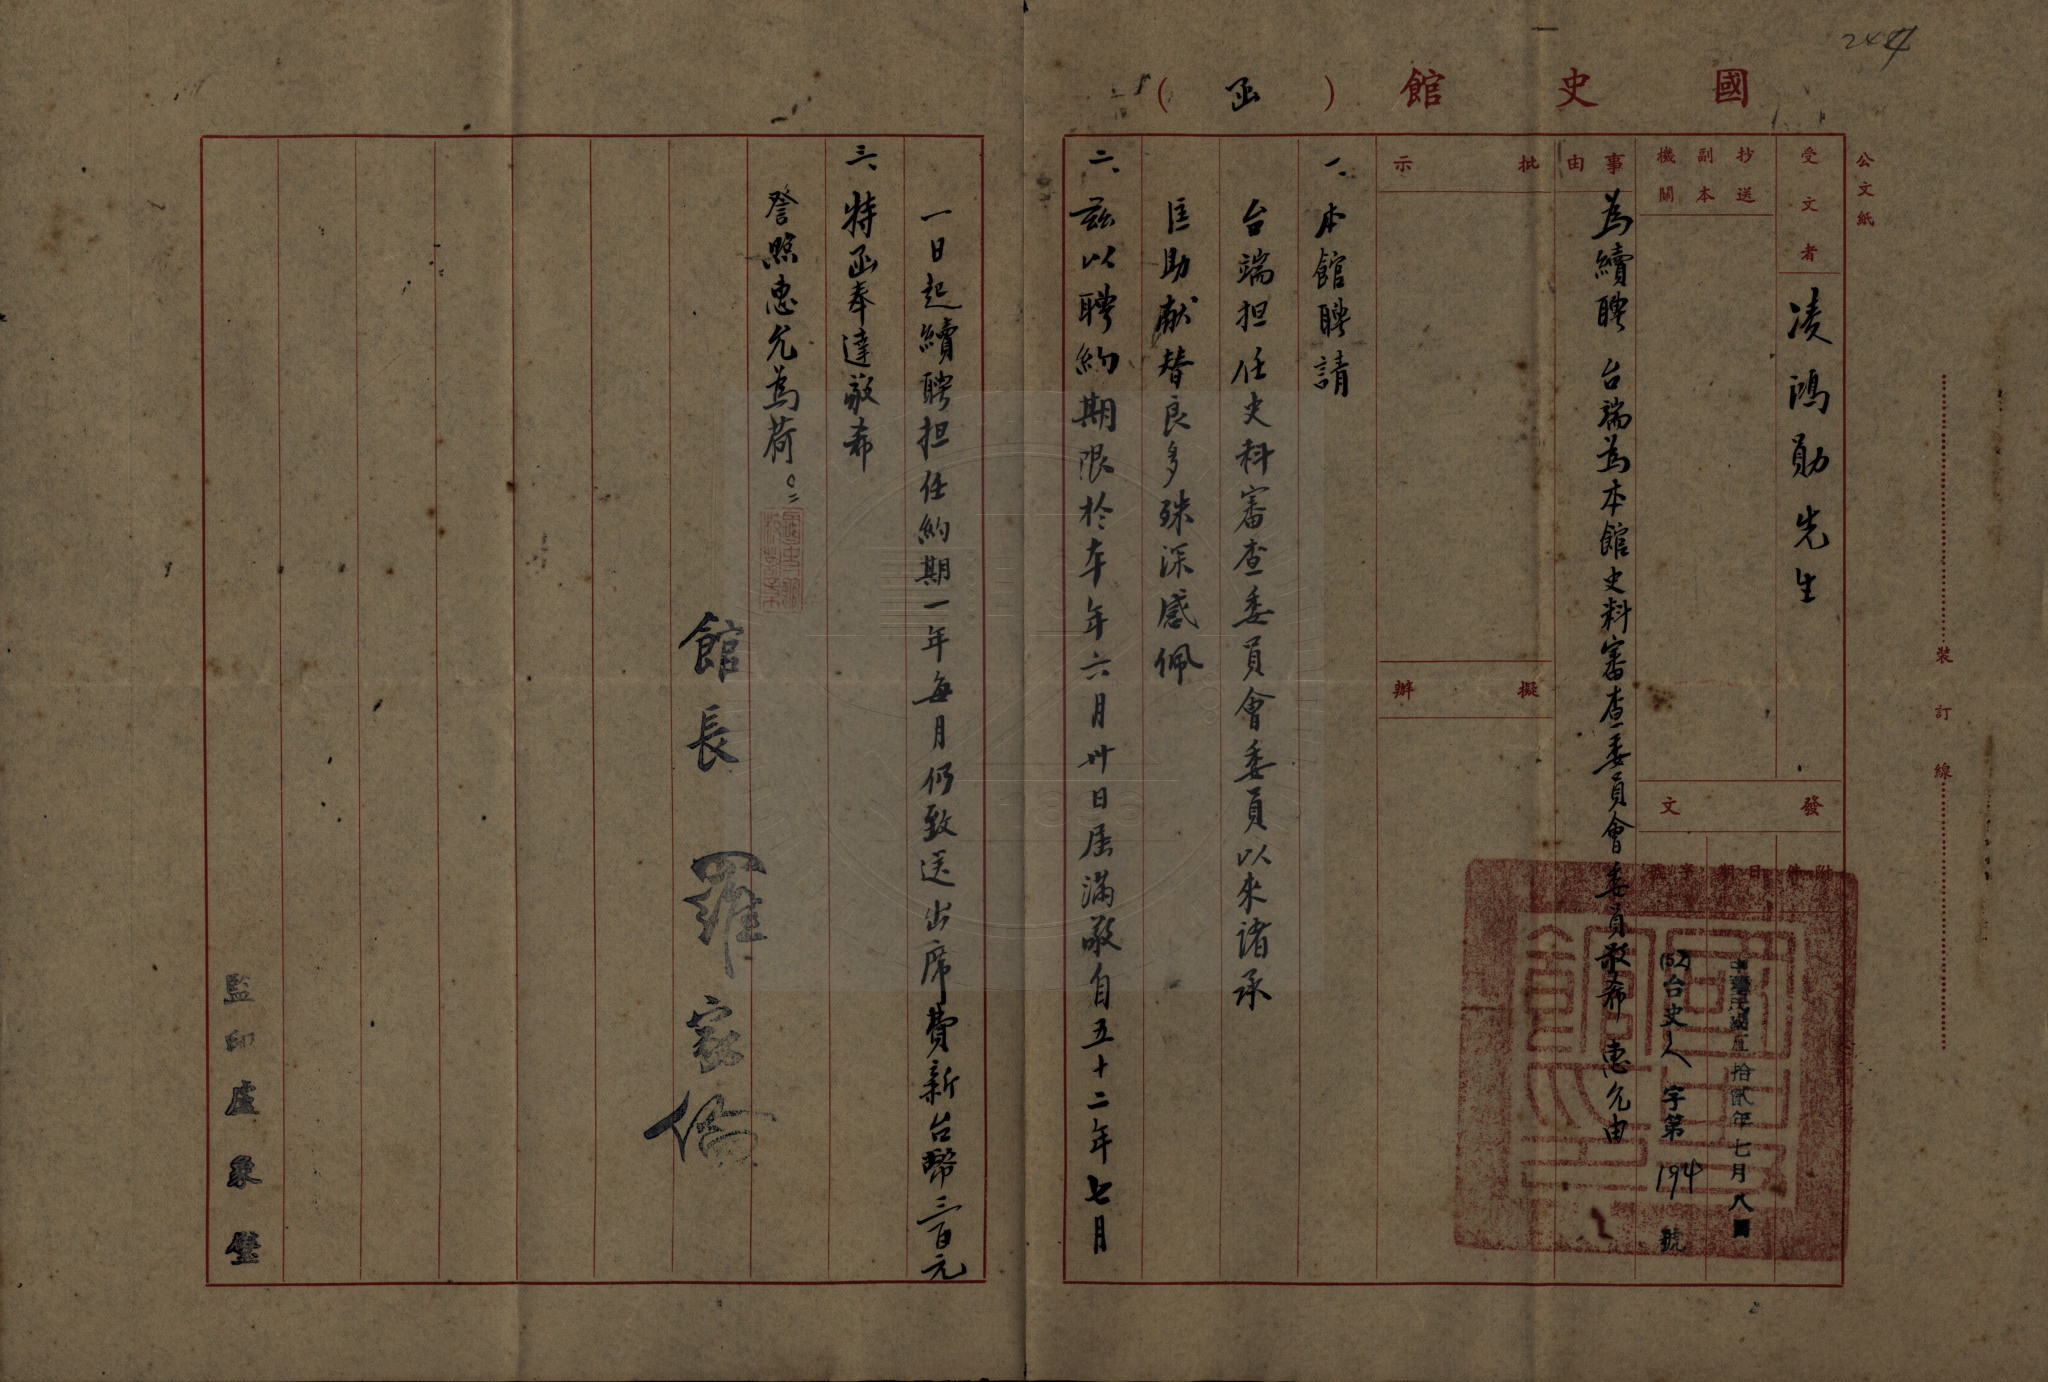 244
國史館（函）
公文紙
受文者
凌鴻勛先生
抄送副本機關
發文
附件
日期
字號
中華民國伍拾貳年七月八日
(52)台史人字第194號
事由
為續聘 台端為本館史料審查委員會委員敬希 惠允由
批示
擬辦
一、本館聘請
台端担任史料審查委員會委員以來諸承
匡助献替良多殊深感佩
二、茲以聘約期限於本年六月卅日屆滿敬自五十二年七月
一日起續聘担任約期一年每月仍致送出席費新台幣三百元
三、特函奉達敬希
詧照惠允為荷。
館長 羅家倫
監印盧象
裝訂線